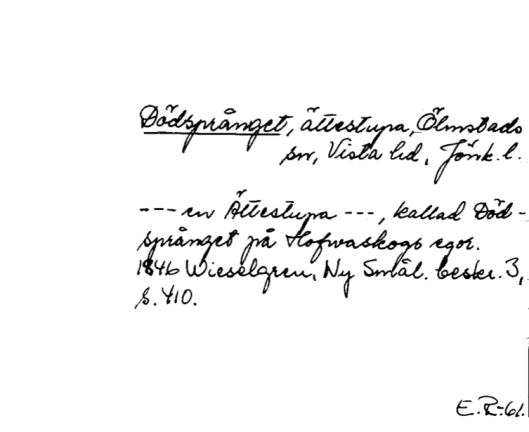 Dödsprånget, ättestupa, Ölmstads
sn, Vista hd, Jönk. l.
--- en Ättestupa ---, kallad Död-
språnget på Hofwaskogs egor.
1846 Wieselgren, Ny Smål. beskr. 3,
s. 410.
E.R-61.